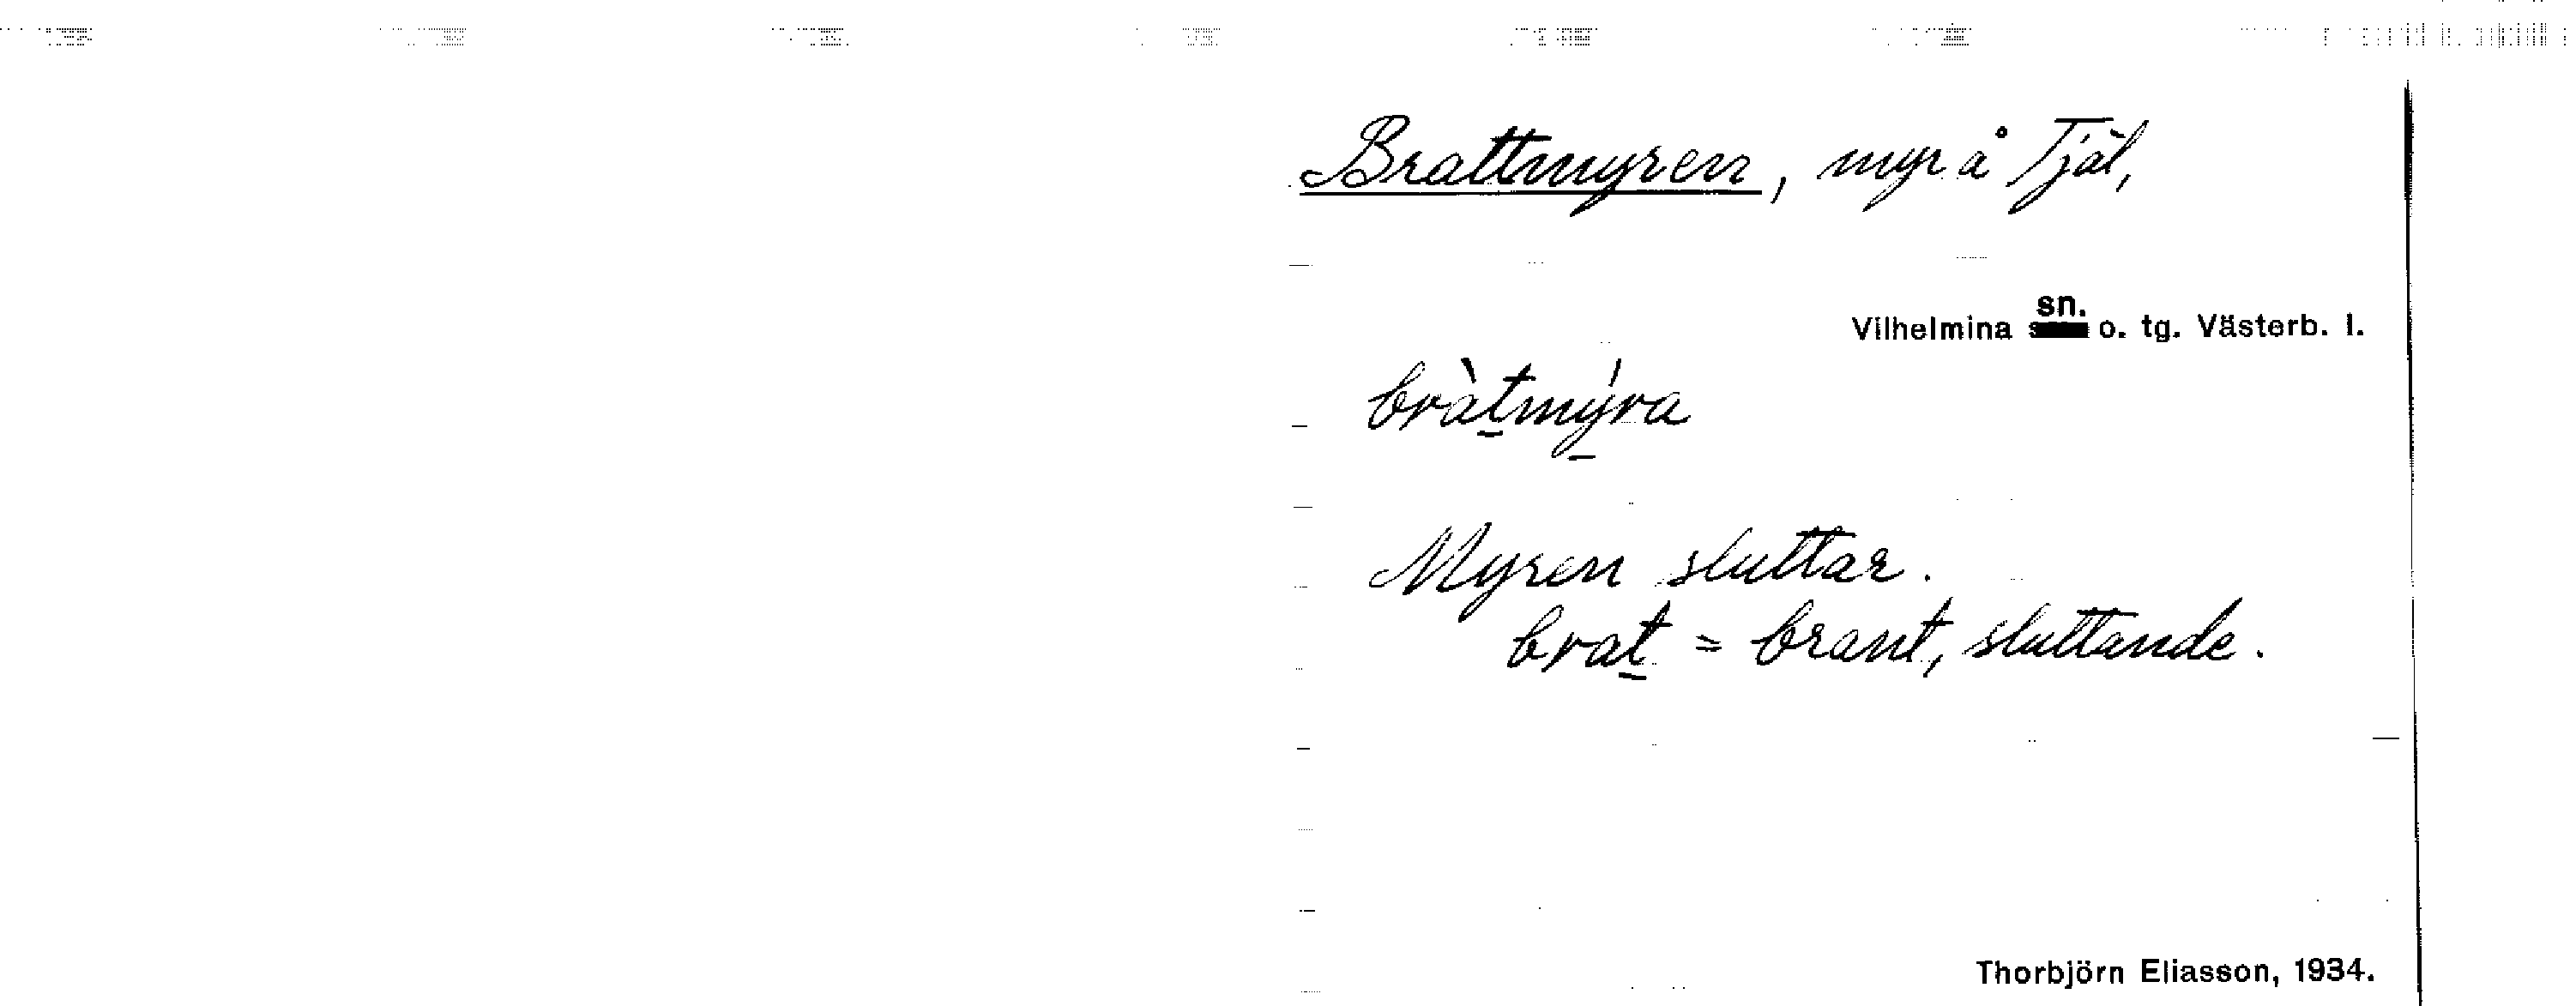 Brattmyren, myr å Tjäl,
Vilhelmina sn. o. tg. Västerb. l.
bràt̲mý̲ra
Myren sluttar.
brat̲ = brant, sluttande.
Thorbjörn Eliasson, 1934.